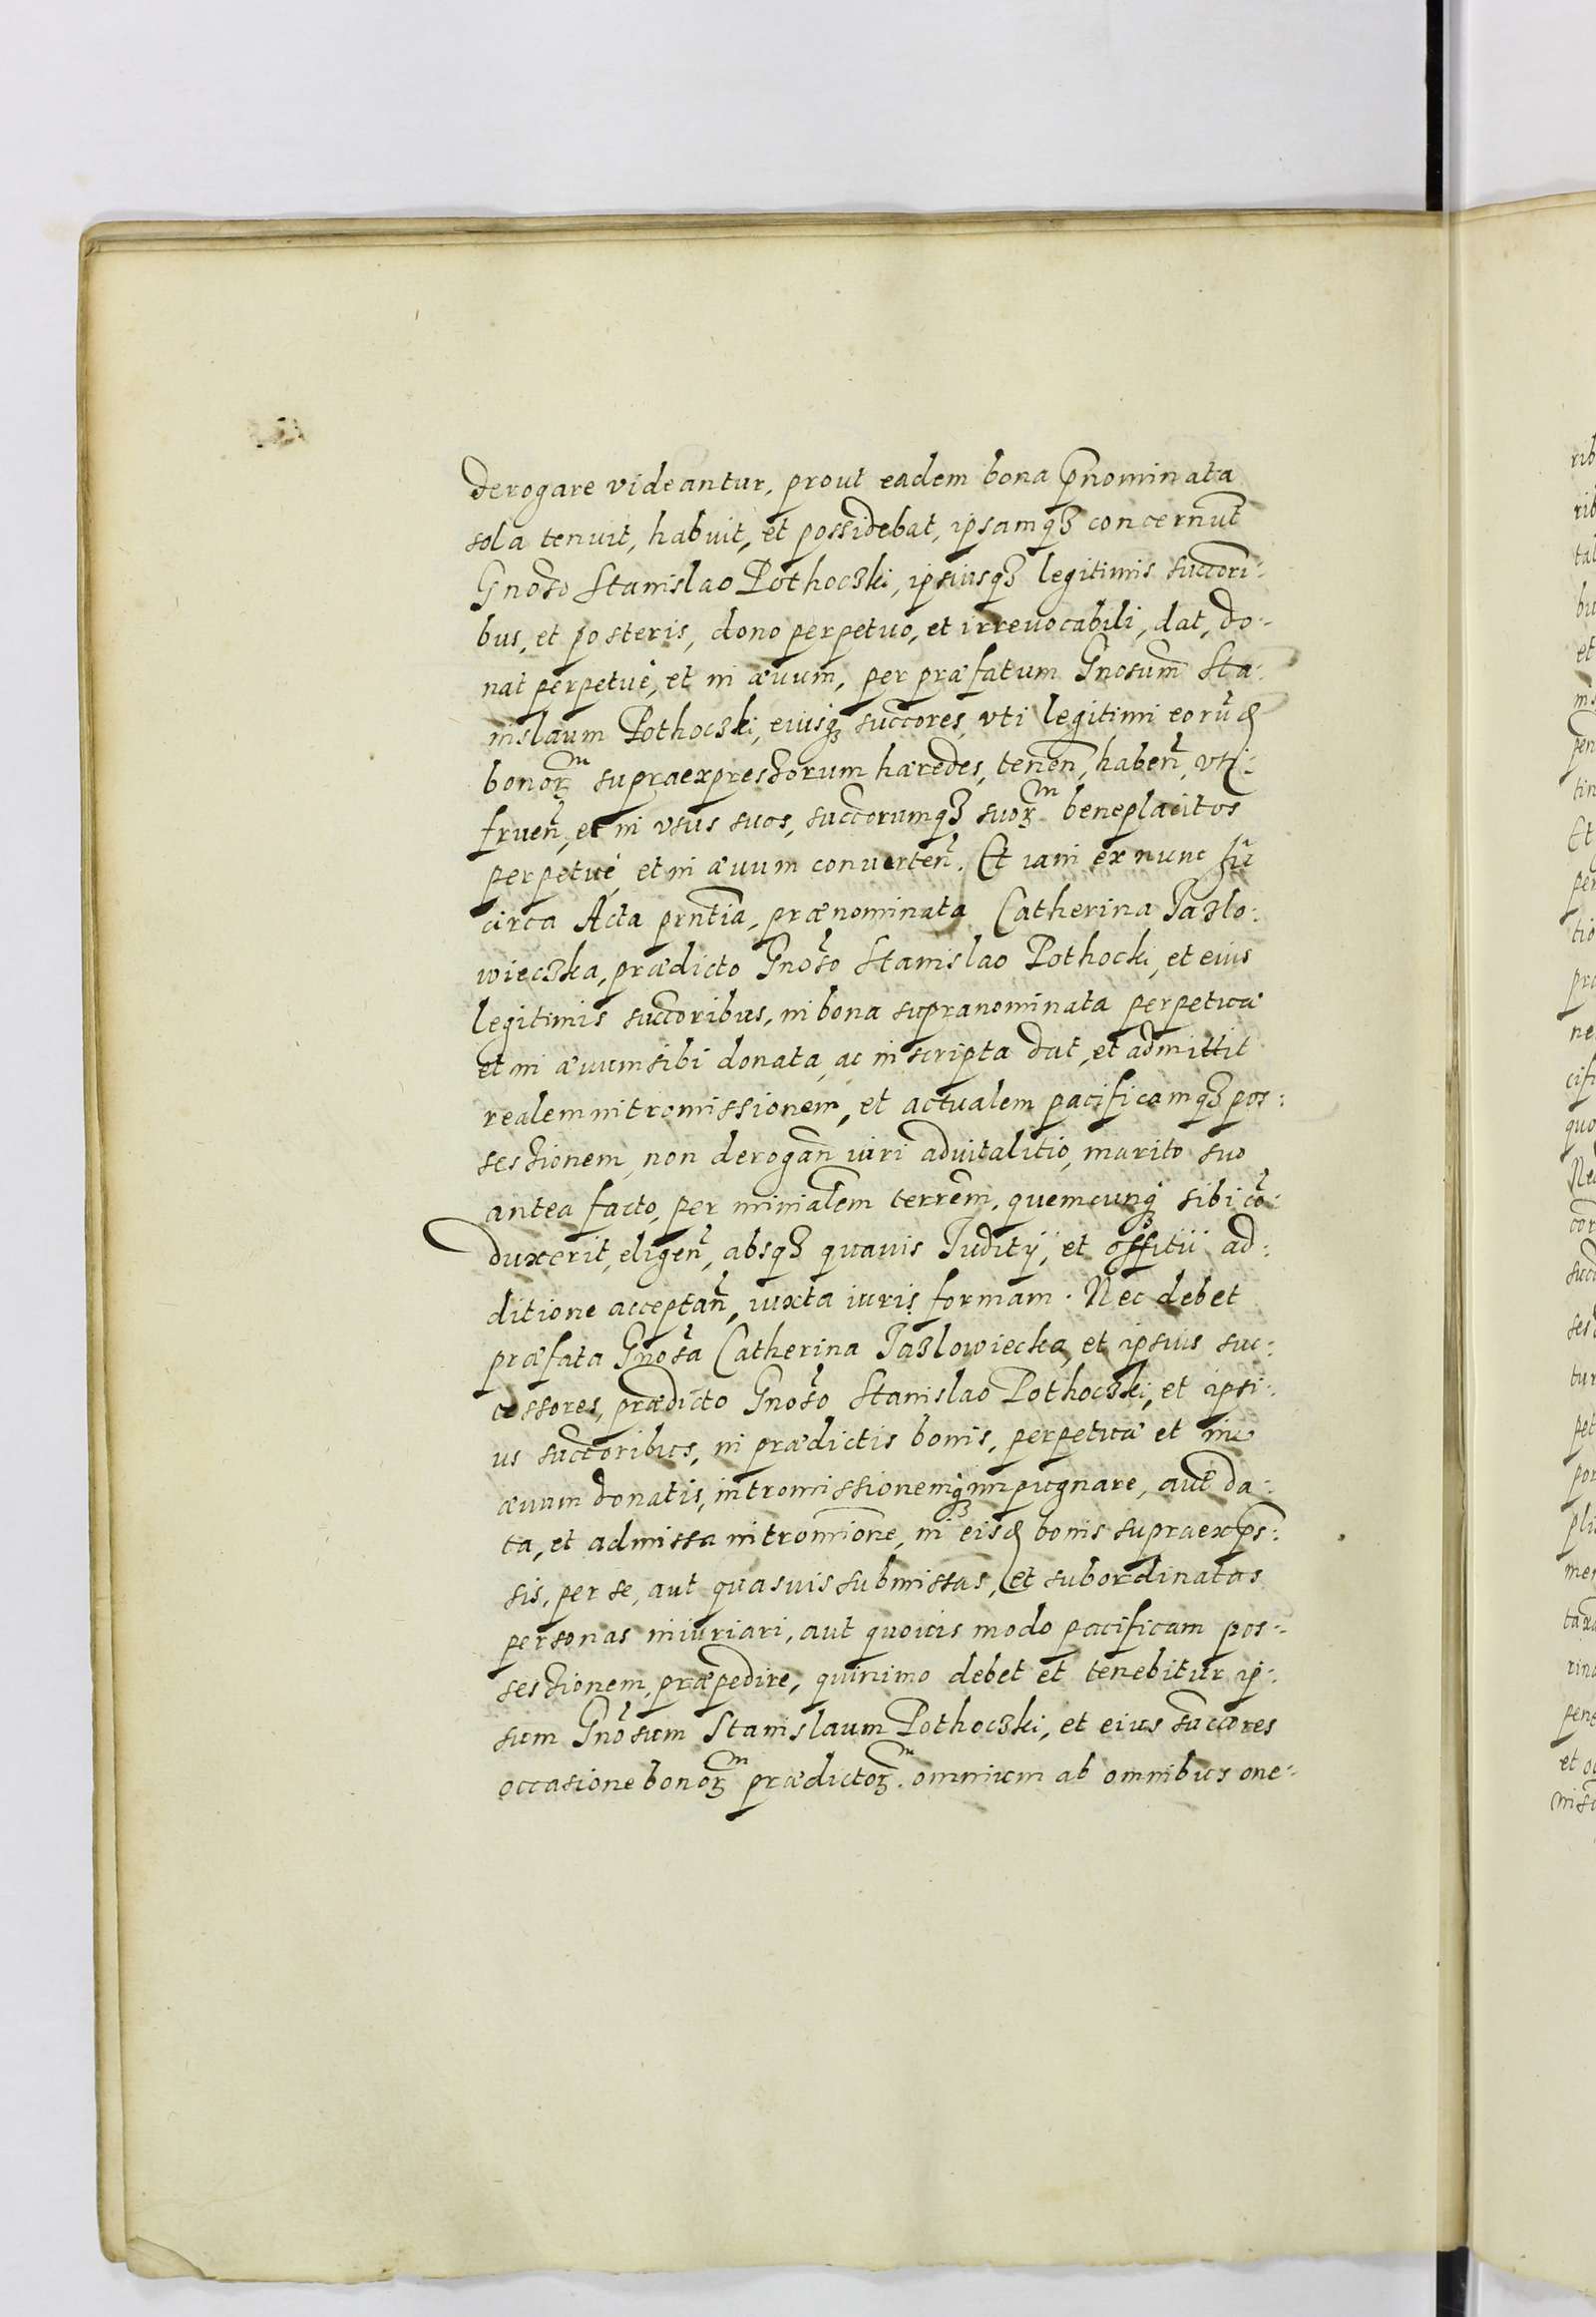 derogare videantur, prout eadem bona p̄nominata
sola tenuit, habuit, et possidebat, ipsamqȝ concernūt
Gnoso Stanislao Pothoczki, ipsiusqȝ legitimis succori-
bus, et posteris, dono perpetuo, et irreuocabili, dat, do-
nat perpetue, et in æuum, per præfatum Gnosum Sta-
nislaum Pothoczki, eiusqȝ succores, vti legitimi eorūd
bonorꝝ supraexpressorum hæredes, tenen̄, haben̄, vti
fruen̄, et in vsus suos, succorumqȝ suorꝝ beneplacitos
perpetue et in æuum conuerten̄. Et iam ex nunc
circa Acta prntia, prænominata Catherina Jazlo-
wieczka, prædicto Gnoso Stanislao Pothocki, et eius
legitimis succoribus, in bona supranominata perpetuæ
et in æuum sibi donata, ac inscripta dat, et admittit
realem intromissionem, et actualem pacificamqȝ pos-
sessionem, non derogan̄ iuri aduitalitio, marito suo
antea facto, per minialem terrem, quemcunqȝ sibi cō-
duxerit, eligen̄, absqȝ quauis Juditij, et offitii ad-
ditione acceptan̄, iuxta iuris formam. Nec debet
præfata Gnosa Catherina Jazlowiecka, et ipsius suc-
cessores, prædicto Gnoso Stanislao Pothoczki, et ipsi-
us succoribus, in prædictis bonis, perpetuæ et in
æuum donatis, intromissionemqȝ impugnare, aut da-
ta, et admissa intromione, in eisd bonis supraexp̄s-
sis, per se, aut quasuis submissas, et subordinatas
personas iniuriari, aut quouis modo pacificam pos-
sessionem, præpedire, quinimo debet et tenebitur ip-
sum Gnosum Stanislaum Pothoczki, et eius succores
occasione bonorꝝ prædictorꝝ omnium ab omnibus one-